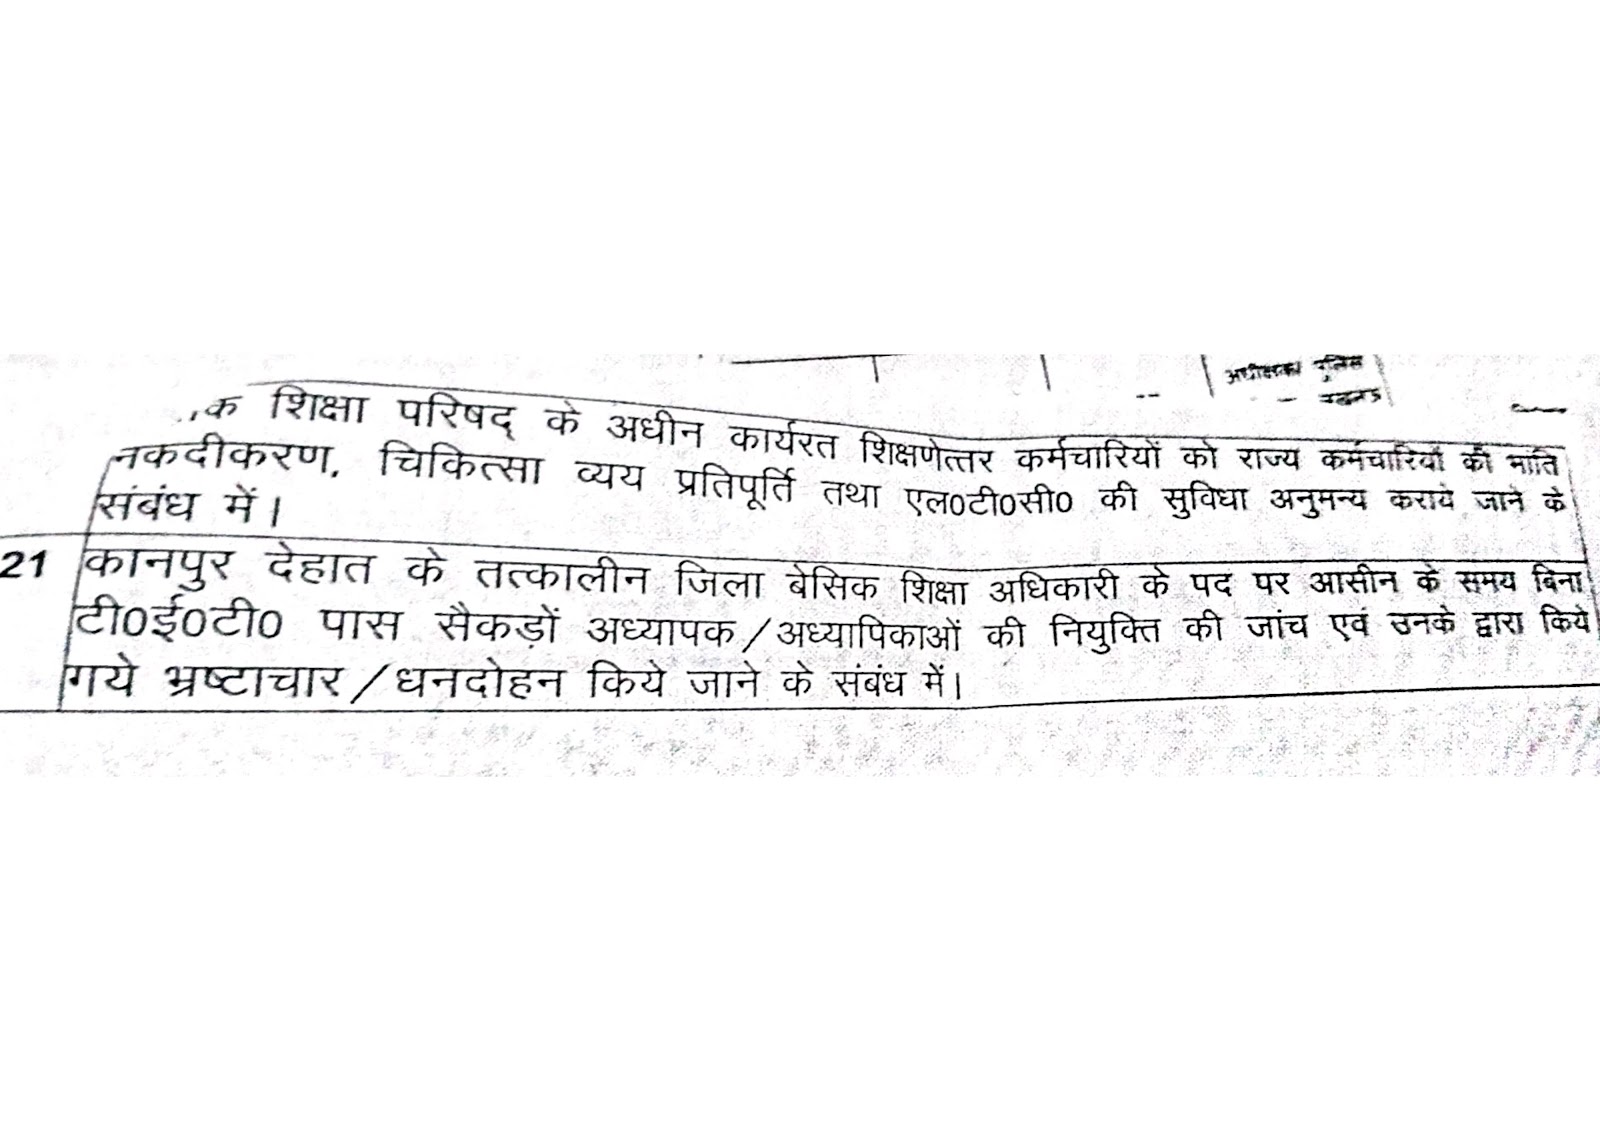 अधीक्षक पुलिस
क शिक्षा परिषद् के अधीन कार्यरत शिक्षणेत्तर कर्मचारियों को राज्य कर्मचारियों की भांति
नकदीकरण, चिकित्सा व्यय प्रतिपूर्ति तथा एल0टी0सी0 की सुविधा अनुमन्य कराये जाने के
संबंध में।
21 कानपुर देहात के तत्कालीन जिला बेसिक शिक्षा अधिकारी के पद पर आसीन के समय बिना
टी0ई0टी0 पास सैकड़ों अध्यापक/अध्यापिकाओं की नियुक्ति की जांच एवं उनके द्वारा किये
गये भ्रष्टाचार/धनदोहन किये जाने के संबंध में।